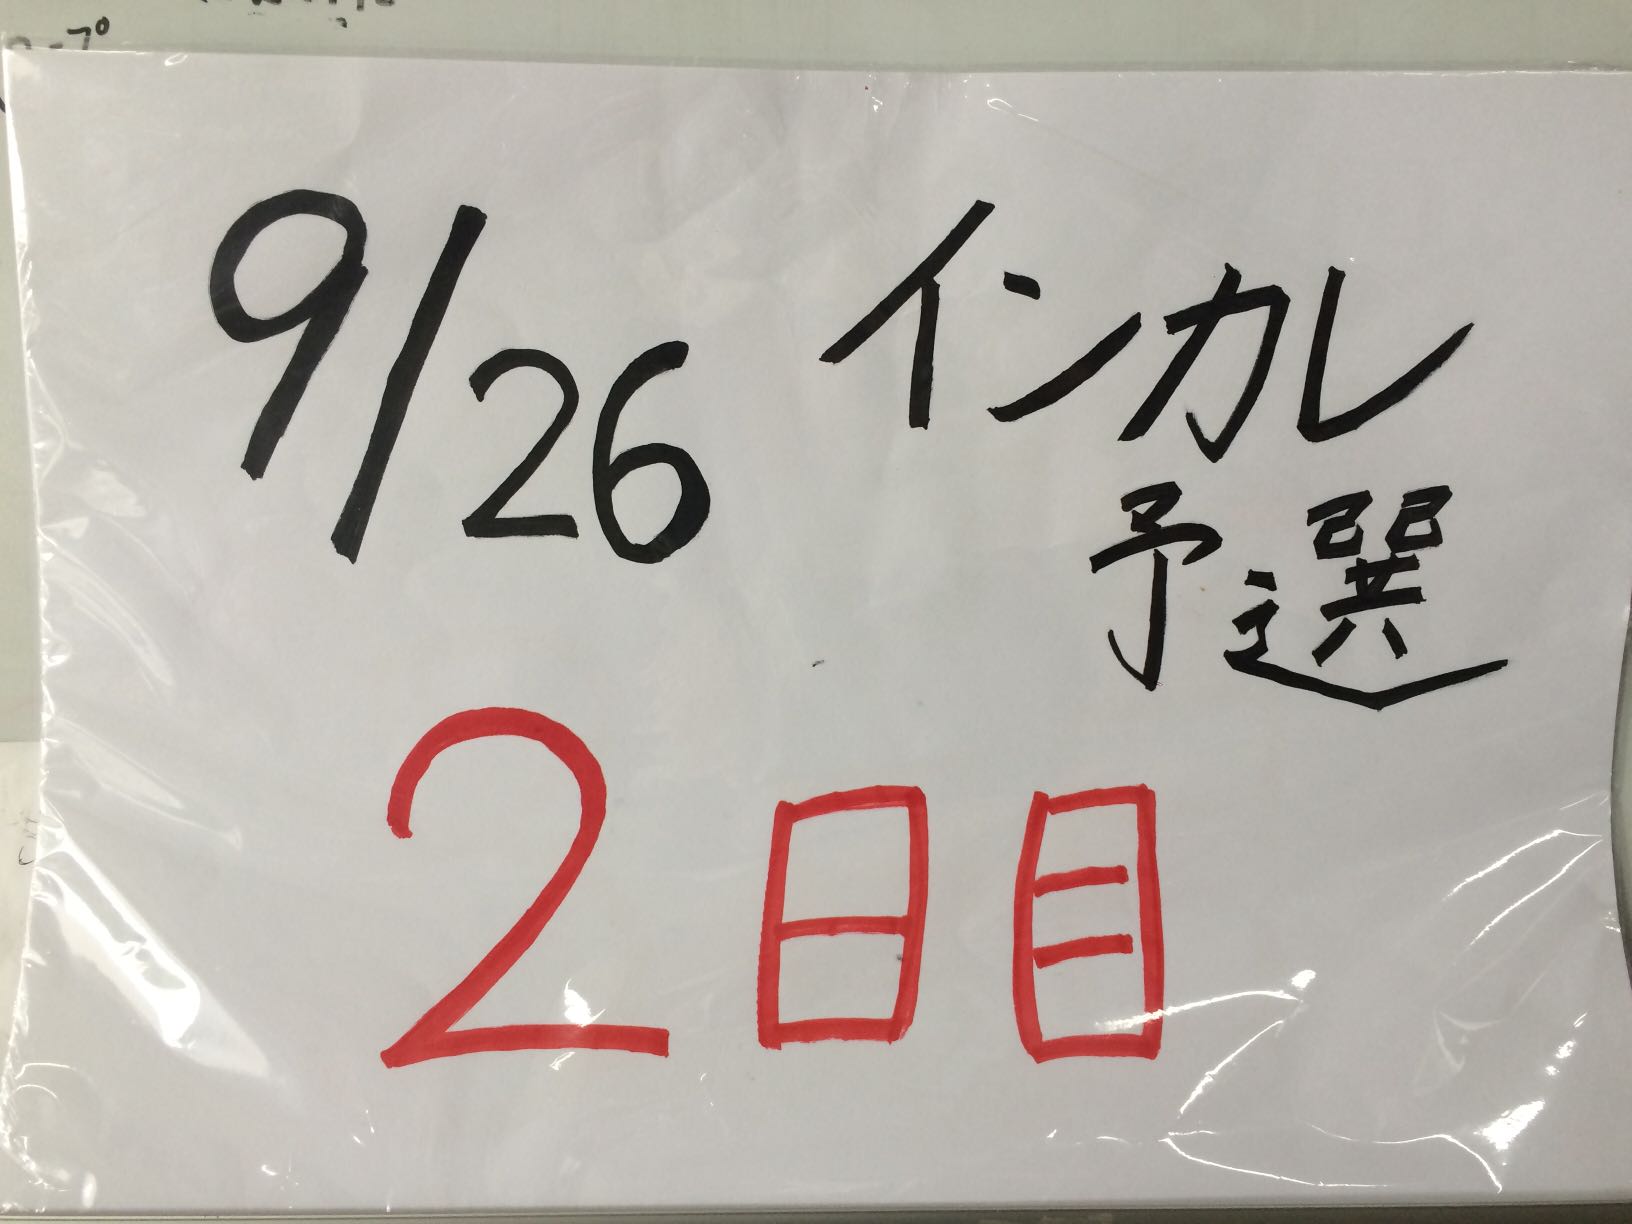 9/26 インカレ
予選
2日目